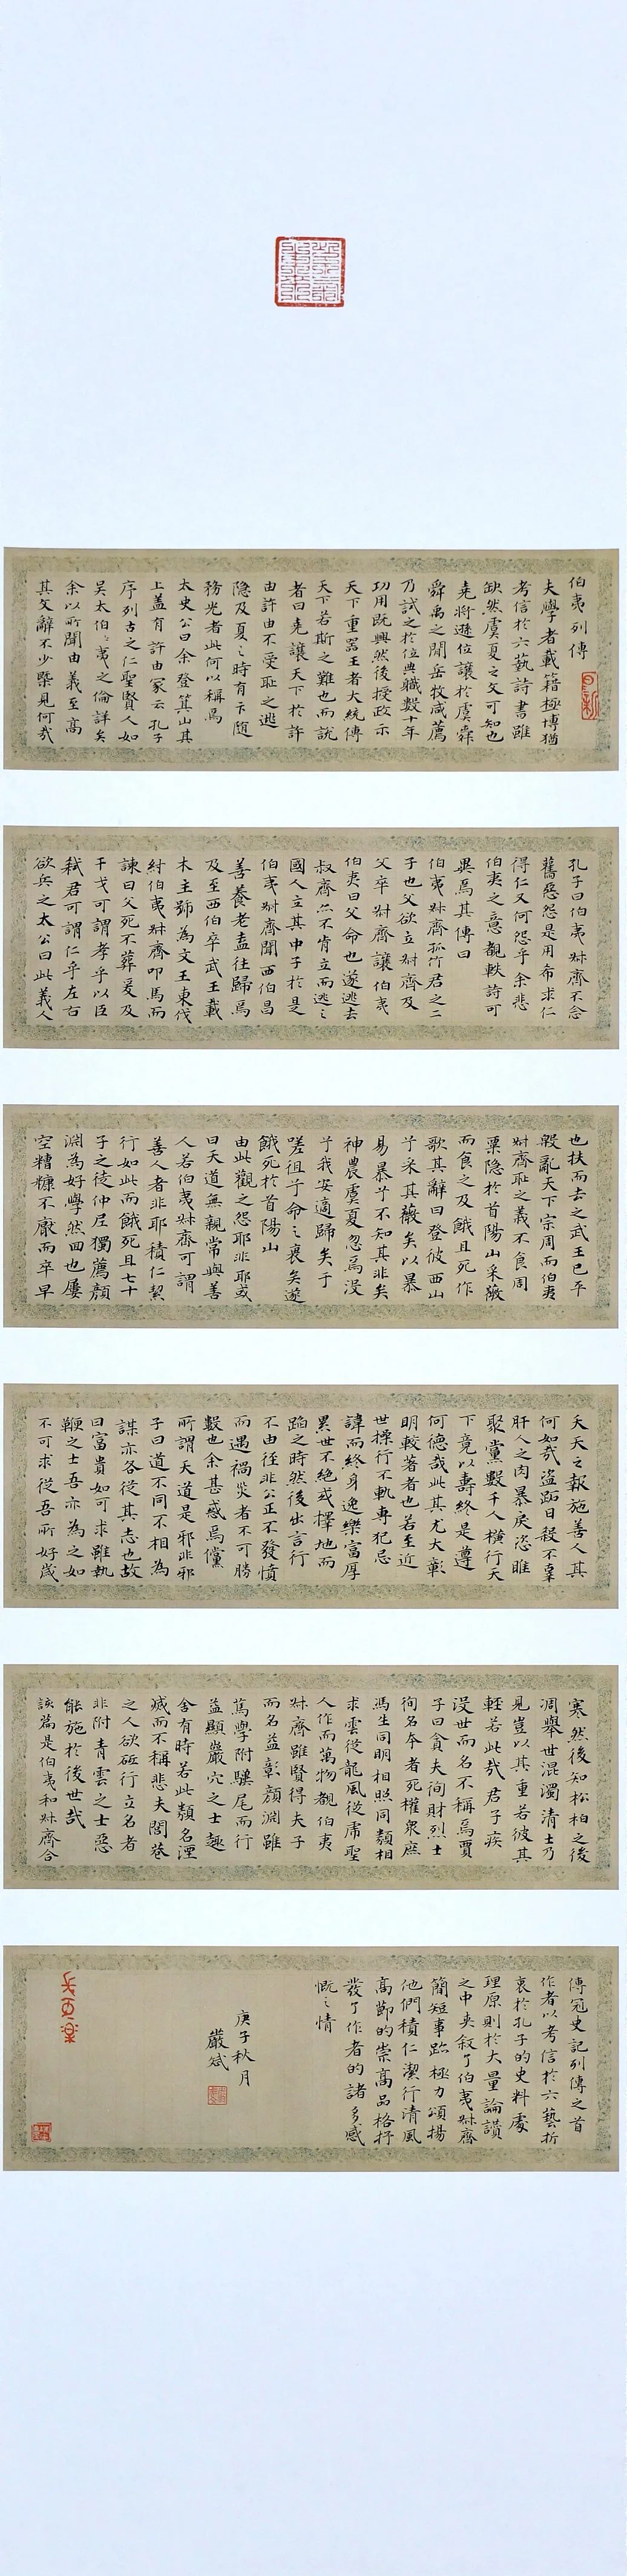 伯夷列傳
夫學者載籍極博猶
考信於六藝詩書雖
缺然虞夏之文可知也
堯將遜位讓於虞舜
舜禹之閒岳牧咸薦
乃試之於位典職數十年
功用既興然後授政示
天下重器王者大統傳
天下若斯之難也而說
者曰堯讓天下於許
由許由不受恥之逃
隱及夏之時有卞随
務光者此何以稱焉
太史公曰余登箕山其
上蓋有許由冢云孔子
序列古之仁聖賢人如
吳太伯伯夷之倫詳矣
余以所聞由義至高
其文辭不少槩見何哉
孔子曰伯夷叔齊不念
舊惡怨是用希求仁
得仁又何怨乎余悲
伯夷之意覩軼詩可
異焉其傳曰
伯夷叔齊孤竹君之二
子也父欲立叔齊及
父卒叔齊讓伯夷
伯夷曰父命也遂逃去
叔齊亦不肯立而逃之
國人立其中子於是
伯夷叔齊聞西伯昌
善養老盍往歸焉
及至西伯卒武王載
木主號為文王東伐
紂伯夷叔齊叩馬而
諫曰父死不葬爰及
干戈可謂孝乎以臣
弒君可謂仁乎左右
欲兵之太公曰此義人
也扶而去之武王已平
殷亂天下宗周而伯夷
叔齊恥之義不食周
粟隐於首陽山采薇
而食之及餓且死作
歌其辭曰登彼西山
兮采其薇矣以暴
易暴兮不知其非矣
神農虞夏忽焉沒
兮我安適歸矣于
嗟徂兮命之衰矣遂
餓死於首陽山
由此觀之怨耶非耶或
曰天道無親常與善
人若伯夷叔齊可謂
善人者非耶積仁絜
行如此而餓死且七十
子之徒仲尼獨薦顏
淵為好學然回也屢
空糟糠不厭而卒早
夭天之報施善人其
何如哉盜跖日殺不辜
肝人之肉暴戾恣睢
聚黨數千人橫行天
下竟以壽終是遵
何德哉此其尤大彰
明較著者也若至近
世操行不軌專犯忌
諱而終身逸樂富厚
累世不絶或擇地而
蹈之時然後出言行
不由徑非公正不發憤
而遇禍災者不可勝
數也余甚惑焉儻
所謂天道是邪非邪
子曰道不同不相為
謀亦各從其志也故
曰富貴如可求雖執
鞭之士吾亦為之如
不可求從吾所好歲
寒然後知松柏之後
凋舉世混濁清士乃
見豈以其重若彼其
輕若此哉君子疾
沒世而名不稱焉賈
子曰貪夫徇財烈士
徇名夸者死權衆庶
馮生同明相照同類相
求雲從龍風從虎聖
人作而萬物覩伯夷
叔齊雖賢得夫子
而名益彰顏淵雖
篤學附驥尾而行
益顯巖穴之士趣
舍有時若此類名湮
滅而不稱悲夫閭巷
之人欲砥行立名者
非附青雲之士惡
能施於後世哉
該篇是伯夷和叔齊合
傳冠史記列傳之首
作者以考信於六藝折
衷於孔子的史料處
理原則於大量論讚
之中夹叙了伯夷叔齊
簡短事跡極力頌揚
他們積仁潔行清風
高節的崇高品格抒
發了作者的諸多感
慨之情
庚子秋月
嚴斌